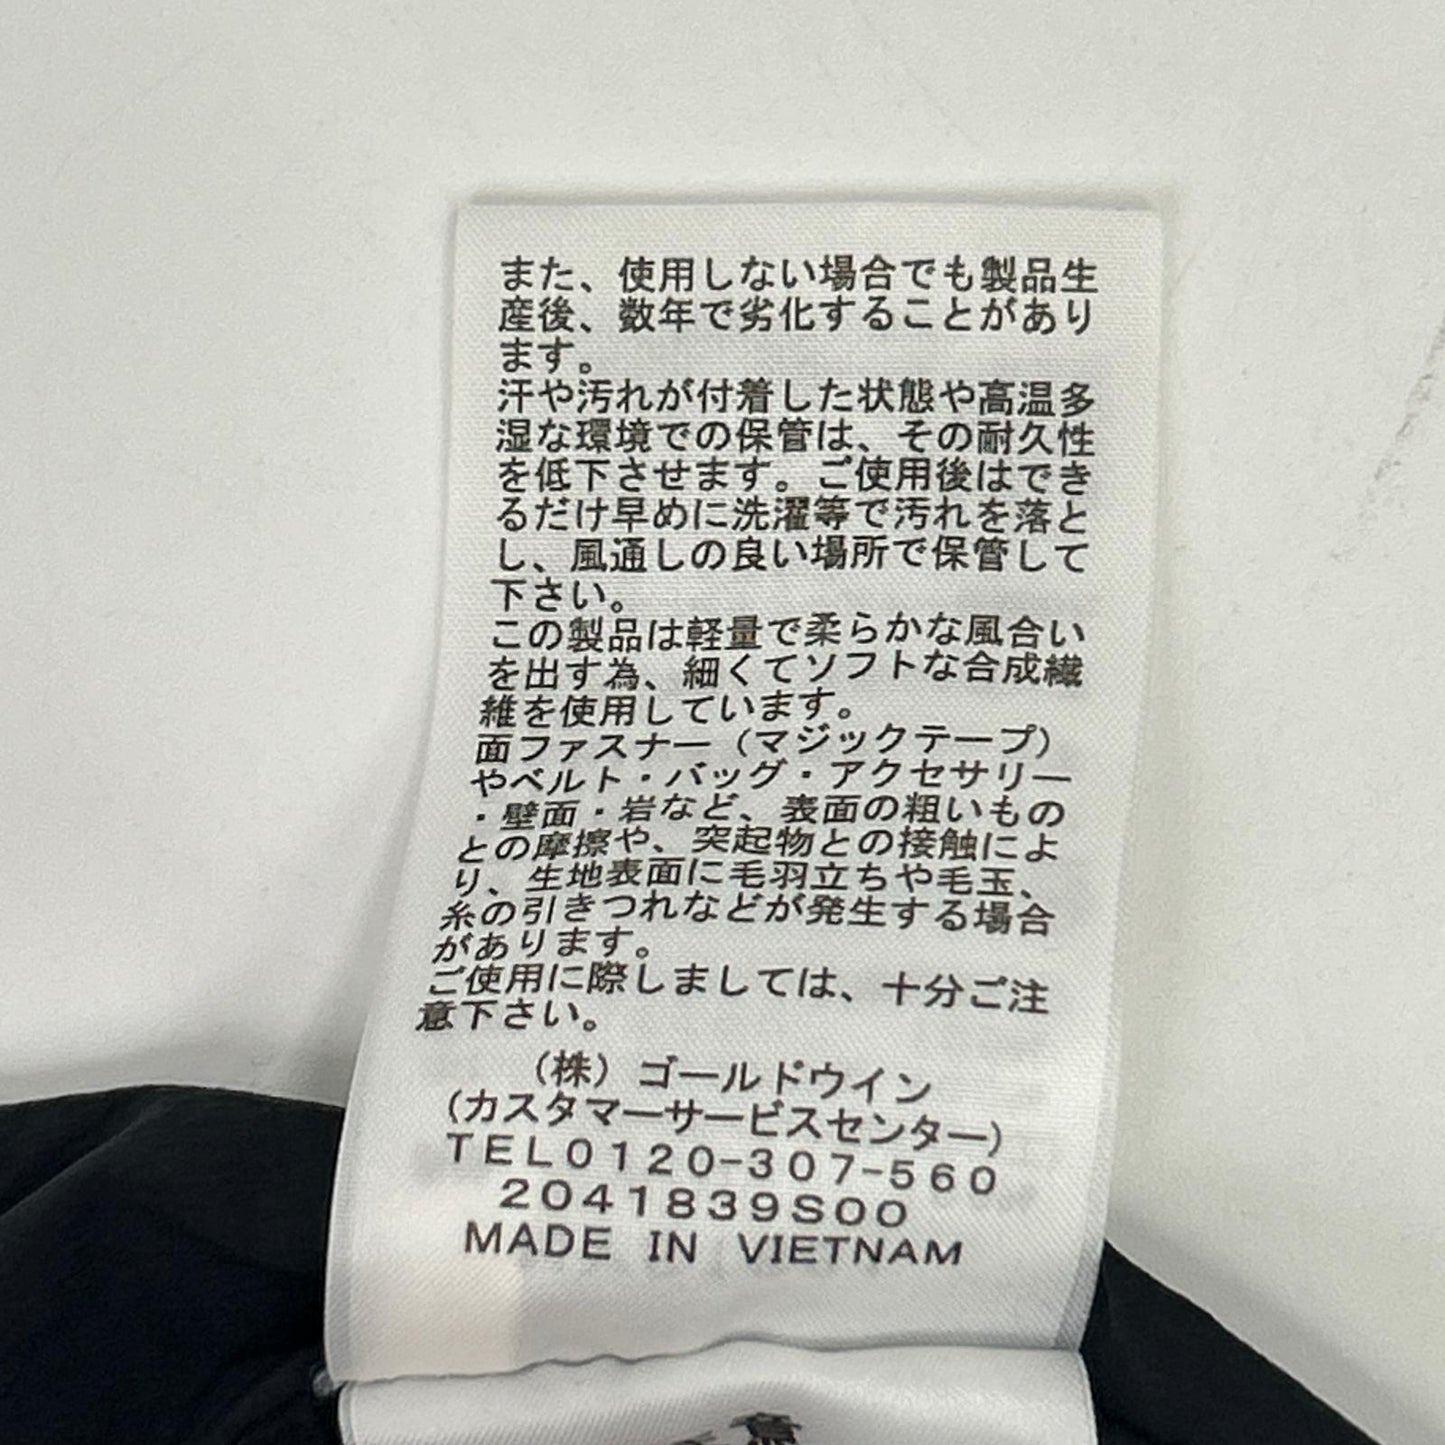 また、使用しない場合でも製品生
産後、数年で劣化することがあり
ます。
汗や汚れが付着した状態や高温多
湿な環境での保管は、その耐久性
を低下させます。ご使用後はでき
るだけ早めに洗濯等で汚れを落と
し、風通しの良い場所で保管して
下さい。
この製品は軽量で柔らかな風合い
を出す為、細くてソフトな合成繊
維を使用しています。
面ファスナー（マジックテープ）
やベルト・バッグ・アクセサリー
・壁面・岩など、表面の粗いもの
との摩擦や、突起物との接触によ
り、生地表面に毛羽立ちや毛玉、
糸の引きつれなどが発生する場合
があります。
ご使用に際しましては、十分ご注
意下さい。
（株）ゴールドウイン
(カスタマーサービスセンター)
TEL0120-307-560
2041839S00
MADE IN VIETNAM